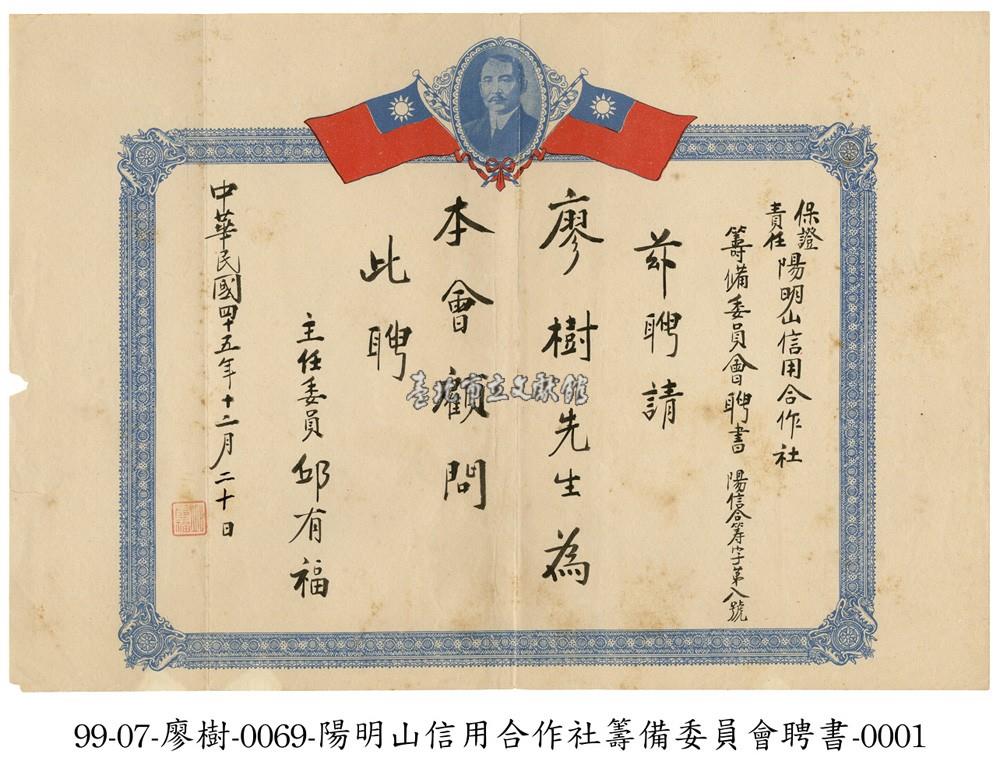 保證
責任
陽明山信用合作社
籌備委員會聘書 陽信合籌字第八號
茲聘請
廖樹先生為
本會顧問
此聘
主任委員 邱有福
中華民國四十五年十二月二十日
臺北市立文獻館
99-07-廖樹-0069-陽明山信用合作社籌備委員會聘書-0001